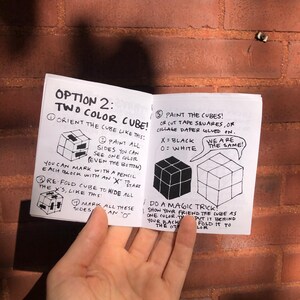 OPTION 2:
TWO COLOR CUBE!
① ORIENT THE CUBE LIKE THIS:
② PAINT ALL
SIDES YOU CAN
SEE ONE COLOR
(EVEN THE BOTTOM)
YOU CAN MARK WITH A PENCIL
EACH BLOCK WITH AN "X"
③ RE-FOLD CUBE TO HIDE ALL
THE X'S LIKE THIS:
④ MARK ALL THESE
SIDES AN "O"
⑤ PAINT THE CUBES!
OR CUT TAPE SQUARES, OR
COLLAGE PAPER GLUED ON.
X = BLACK
O = WHITE
WE ARE
THE SAME!
DO A MAGIC TRICK!
SHOW YOUR FRIEND THE CUBE AS
ONE COLOR, PUT IT BEHIND
YOUR BACK FOLD IT TO
THE COLOR